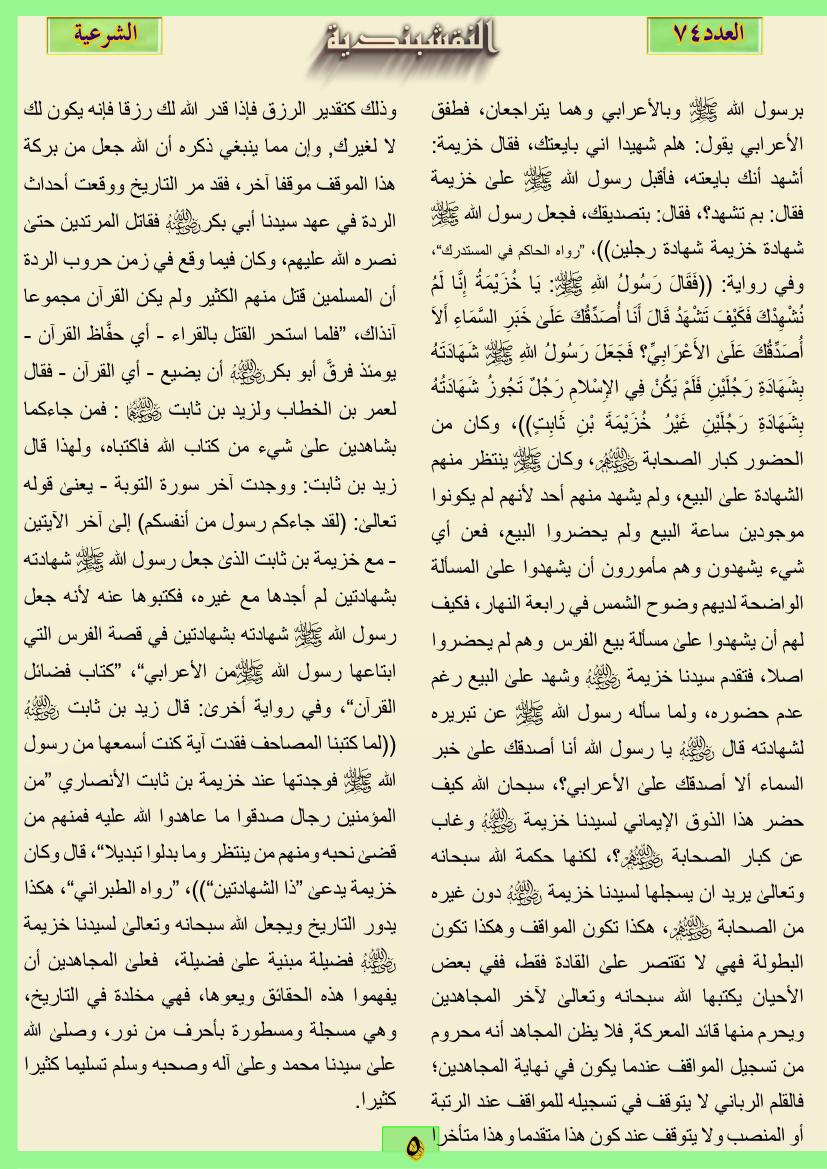 العدد ٧٤
النقشبندية
الشرعية
برسول الله ﷺ وبالأعرابي وهما يتراجعان، فطفق
الأعرابي يقول: هلم شهيدا اني بايعتك، فقال خزيمة:
أشهد أنك بايعته، فأقبل رسول الله ﷺ على خزيمة
فقال: بم تشهد؟، فقال: بتصديقك، فجعل رسول الله ﷺ
شهادة خزيمة شهادة رجلين))، ”رواه الحاكم في المستدرك“،
وفي رواية: ((فَقَالَ رَسُولُ اللهِ ﷺ: يَا خُزَيْمَةُ إِنَّا لَمْ
نُشْهِدْكَ فَكَيْفَ تَشْهَدُ قَالَ أَنَا أُصَدِّقُكَ عَلَىٰ خَبَرِ السَّمَاءِ أَلاَ
أُصَدِّقُكَ عَلَىٰ الأَعْرَابِيِّ؟ فَجَعَلَ رَسُولُ اللهِ ﷺ شَهَادَتَهُ
بِشَهَادَةِ رَجُلَيْنِ فَلَمْ يَكُنْ فِي الإِسْلامِ رَجُلٌ تَجُوزُ شَهَادَتُهُ
بِشَهَادَةِ رَجُلَيْنِ غَيْرُ خُزَيْمَةَ بْنِ ثَابِتٍ))، وكان من
الحضور كبار الصحابة رضي الله عنهم، وكان ﷺ ينتظر منهم
الشهادة علىٰ البيع، ولم يشهد منهم أحد لأنهم لم يكونوا
موجودين ساعة البيع ولم يحضروا البيع، فعن أي
شيء يشهدون وهم مأمورون أن يشهدوا علىٰ المسألة
الواضحة لديهم وضوح الشمس في رابعة النهار، فكيف
لهم أن يشهدوا علىٰ مسألة بيع الفرس وهم لم يحضروا
اصلا، فتقدم سيدنا خزيمة رضي الله عنه وشهد علىٰ البيع رغم
عدم حضوره، ولما سأله رسول الله ﷺ عن تبريره
لشهادته قال رضي الله عنه يا رسول الله أنا أصدقك علىٰ خبر
السماء ألا أصدقك علىٰ الأعرابي؟، سبحان الله كيف
حضر هذا الذوق الإيماني لسيدنا خزيمة رضي الله عنه وغاب
عن كبار الصحابة رضي الله عنهم؟، لكنها حكمة الله سبحانه
وتعالىٰ يريد ان يسجلها لسيدنا خزيمة رضي الله عنه دون غيره
من الصحابة رضي الله عنهم، هكذا تكون المواقف وهكذا تكون
البطولة فهي لا تقتصر علىٰ القادة فقط، ففي بعض
الأحيان يكتبها الله سبحانه وتعالىٰ لآخر المجاهدين
ويحرم منها قائد المعركة, فلا يظن المجاهد أنه محروم
من تسجيل المواقف عندما يكون في نهاية المجاهدين؛
فالقلم الرباني لا يتوقف في تسجيله للمواقف عند الرتبة
أو المنصب ولا يتوقف عند كون هذا متقدما وهذا متأخرا
وذلك كتقدير الرزق فإذا قدر الله لك رزقا فإنه يكون لك
لا لغيرك, وإن مما ينبغي ذكره أن الله جعل من بركة
هذا الموقف موقفا آخر، فقد مر التاريخ ووقعت أحداث
الردة في عهد سيدنا أبي بكر رضي الله عنه فقاتل المرتدين حتىٰ
نصره الله عليهم، وكان فيما وقع في زمن حروب الردة
أن المسلمين قتل منهم الكثير ولم يكن القرآن مجموعا
آنذاك، ”فلما استحر القتل بالقراء - أي حفَّاظ القرآن -
يومئذ فرقَّ أبو بكر رضي الله عنه أن يضيع - أي القرآن - فقال
لعمر بن الخطاب ولزيد بن ثابت رضي الله عنهما : فمن جاءكما
بشاهدين علىٰ شيء من كتاب الله فاكتباه، ولهذا قال
زيد بن ثابت: ووجدت آخر سورة التوبة - يعنىٰ قوله
تعالىٰ: (لقد جاءكم رسول من أنفسكم) إلىٰ آخر الآيتين
- مع خزيمة بن ثابت الذىٰ جعل رسول الله ﷺ شهادته
بشهادتين لم أجدها مع غيره، فكتبوها عنه لأنه جعل
رسول الله ﷺ شهادته بشهادتين في قصة الفرس التي
ابتاعها رسول الله ﷺ من الأعرابي“، ”كتاب فضائل
القرآن“، وفي رواية أخرىٰ: قال زيد بن ثابت رضي الله عنه
((لما كتبنا المصاحف فقدت آية كنت أسمعها من رسول
الله ﷺ فوجدتها عند خزيمة بن ثابت الأنصاري ”من
المؤمنين رجال صدقوا ما عاهدوا الله عليه فمنهم من
قضىٰ نحبه ومنهم من ينتظر وما بدلوا تبديلا“، قال وكان
خزيمة يدعىٰ ”ذا الشهادتين“))، ”رواه الطبراني“، هكذا
يدور التاريخ ويجعل الله سبحانه وتعالىٰ لسيدنا خزيمة
رضي الله عنه فضيلة مبنية علىٰ فضيلة، فعلىٰ المجاهدين أن
يفهموا هذه الحقائق ويعوها، فهي مخلدة في التاريخ،
وهي مسجلة ومسطورة بأحرف من نور، وصلىٰ الله
علىٰ سيدنا محمد وعلىٰ آله وصحبه وسلم تسليما كثيرا
كثيرا.
٥